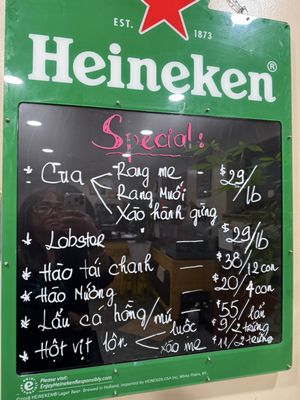 EST. 1873
Heineken®
Special:
* Cua Rang me — $29/lb
Rang Muối
Xào hành gừng
* Lobster — $29/lb
* Hào tái chanh — $38/12 con
* Hào Nướng — $20/4 con
* Lẩu cá hồng/mú — $55/lẩu
* Hột vịt lộn luộc — $9/2 trứng
xào me — $11/2 trứng
Please visit:
EnjoyHeinekenResponsibly.com
HEINEKEN® Lager Beer. Brewed in Holland. Imported by HEINEKEN USA Inc. White Plains, NY.